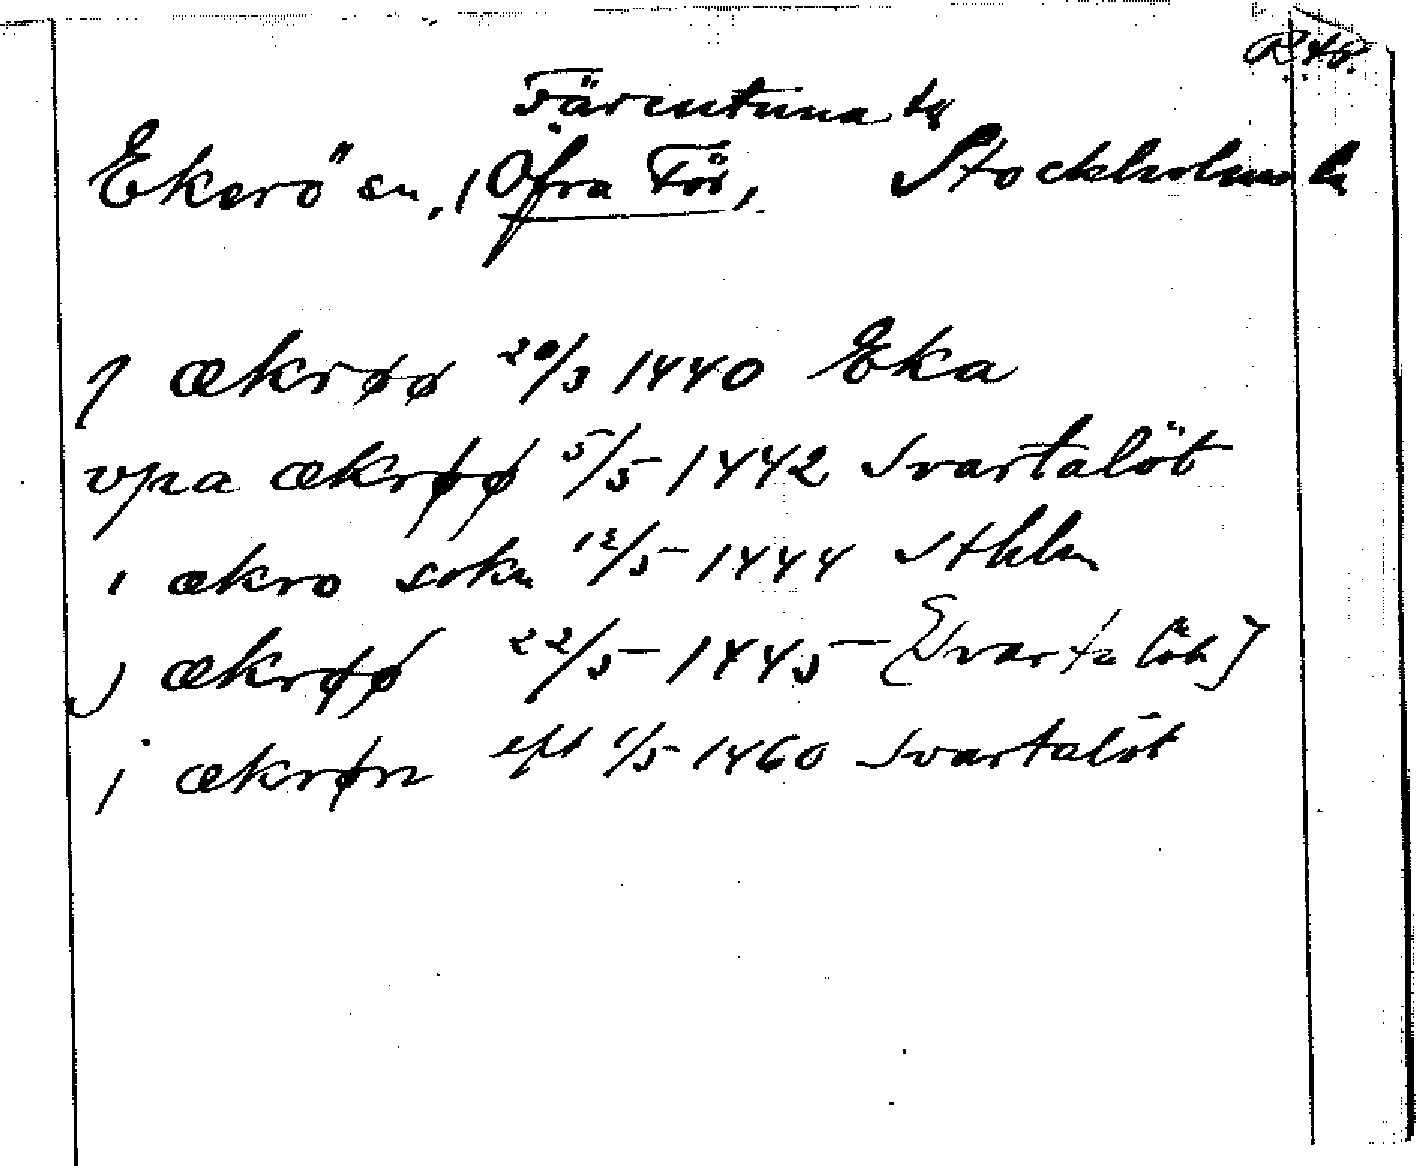 Färentuna
Ekerö sn, Öfra Tör, Stockholms
j ækrøø 20/3 1440 Eka
vpa ækrøø 5/5 1442 Svartalöt
i ækro sokn 12/5 1444 Sthlm
j ækrøø 22/5 1445 [Svartalöt]
i ækrøn eft 1/5 1460 Svartalöt